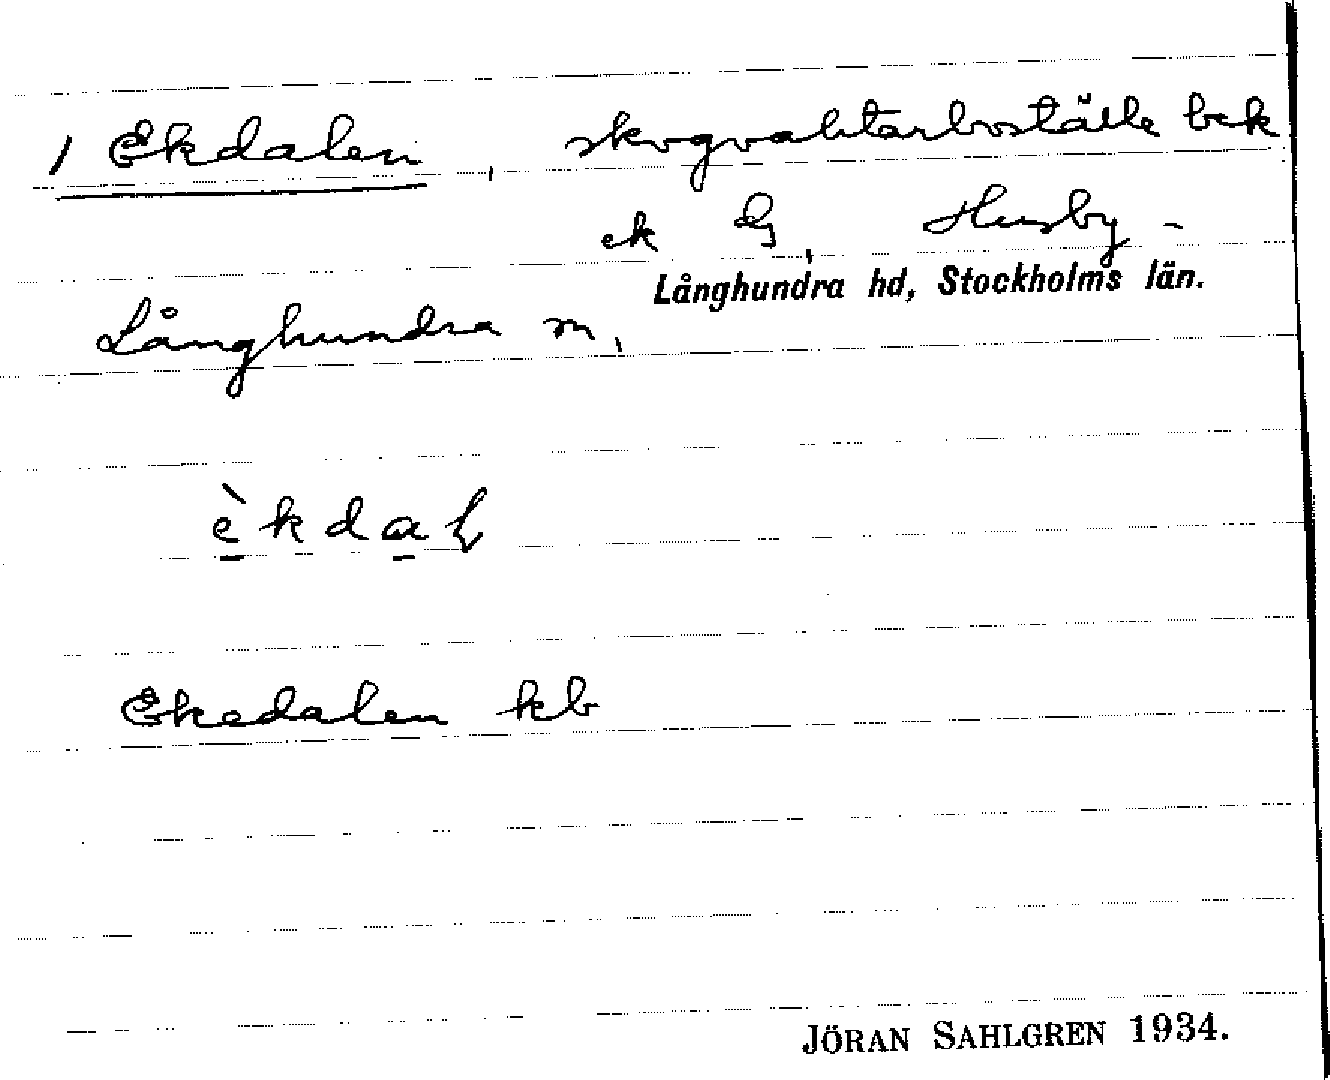 / Ekdalen, skogvaktarboställe bek
ek G, Husby-
Långhundra hd, Stockholms län.
Långhundra sn,
èkdaɬ
Ekedalen kb
JÖRAN SAHLGREN 1934.